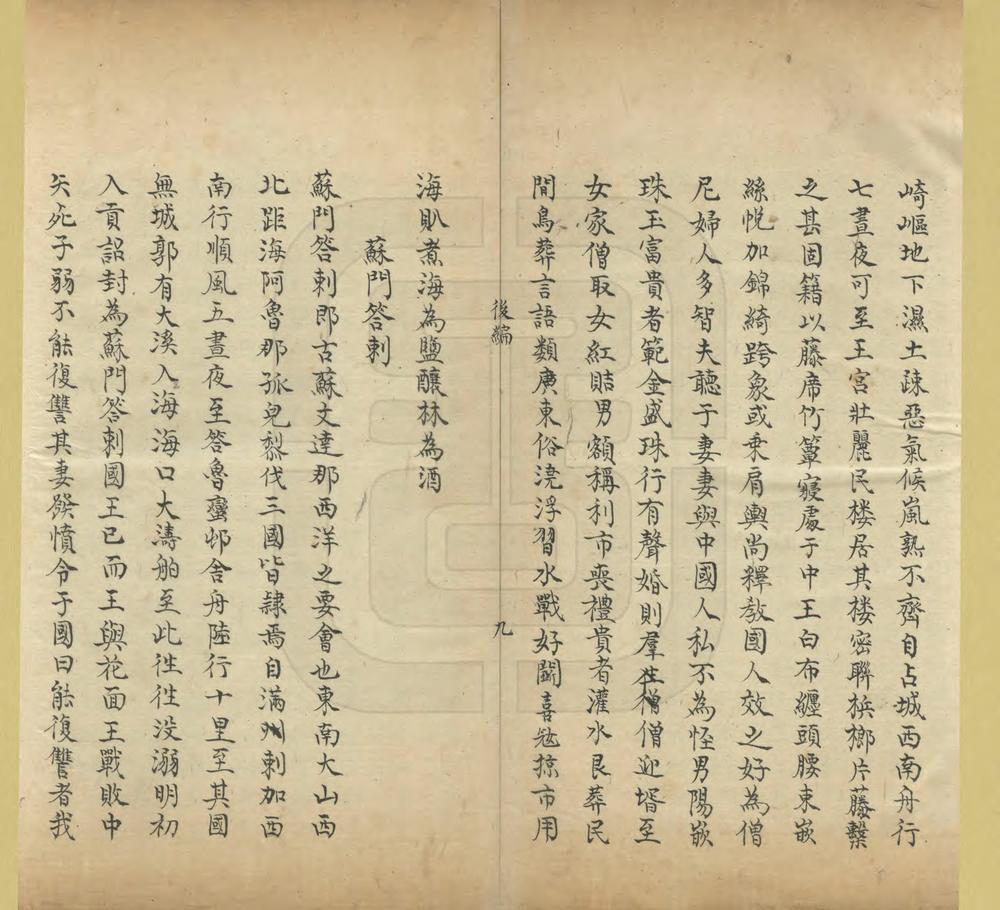 崎嶇地下濕土疎惡氣候嵐熱不齊自占城西南舟行
七晝夜可至王宮壯麗民楼居其楼密聯梹榔片藤繫
之甚固籍以藤席竹簟寢處于中王白布纏頭腰束嵌
絲帨加錦綺跨象或乗肩輿尚釋教國人效之好為僧
尼婦人多智夫聽于妻妻與中國人私不為怪男陽嵌
珠玉富貴者範金盛珠行有聲婚則羣徃僧僧迎壻至
女家僧取女紅貼男額稱利市喪禮貴者灌水艮葬民
間鳥葬言語類廣東俗澆浮習水戰好鬬喜冦掠市用
後編
九
海𧴩煮海為鹽釀秫為酒
蘇門答剌
蘇門答剌即古蘇文達那西洋之要會也東南大山西
北距海阿魯那孤兒黎伐三國皆隷焉自滿州剌加西
南行順風五晝夜至答魯蠻邨舍舟陸行十里至其國
無城郭有大溪入海海口大濤舶至此徃徃没溺明初
入貢詔封為蘇門答剌國王已而王與花面王戰敗中
矢死子弱不能復讐其妻發憤令于國曰能復讐者我